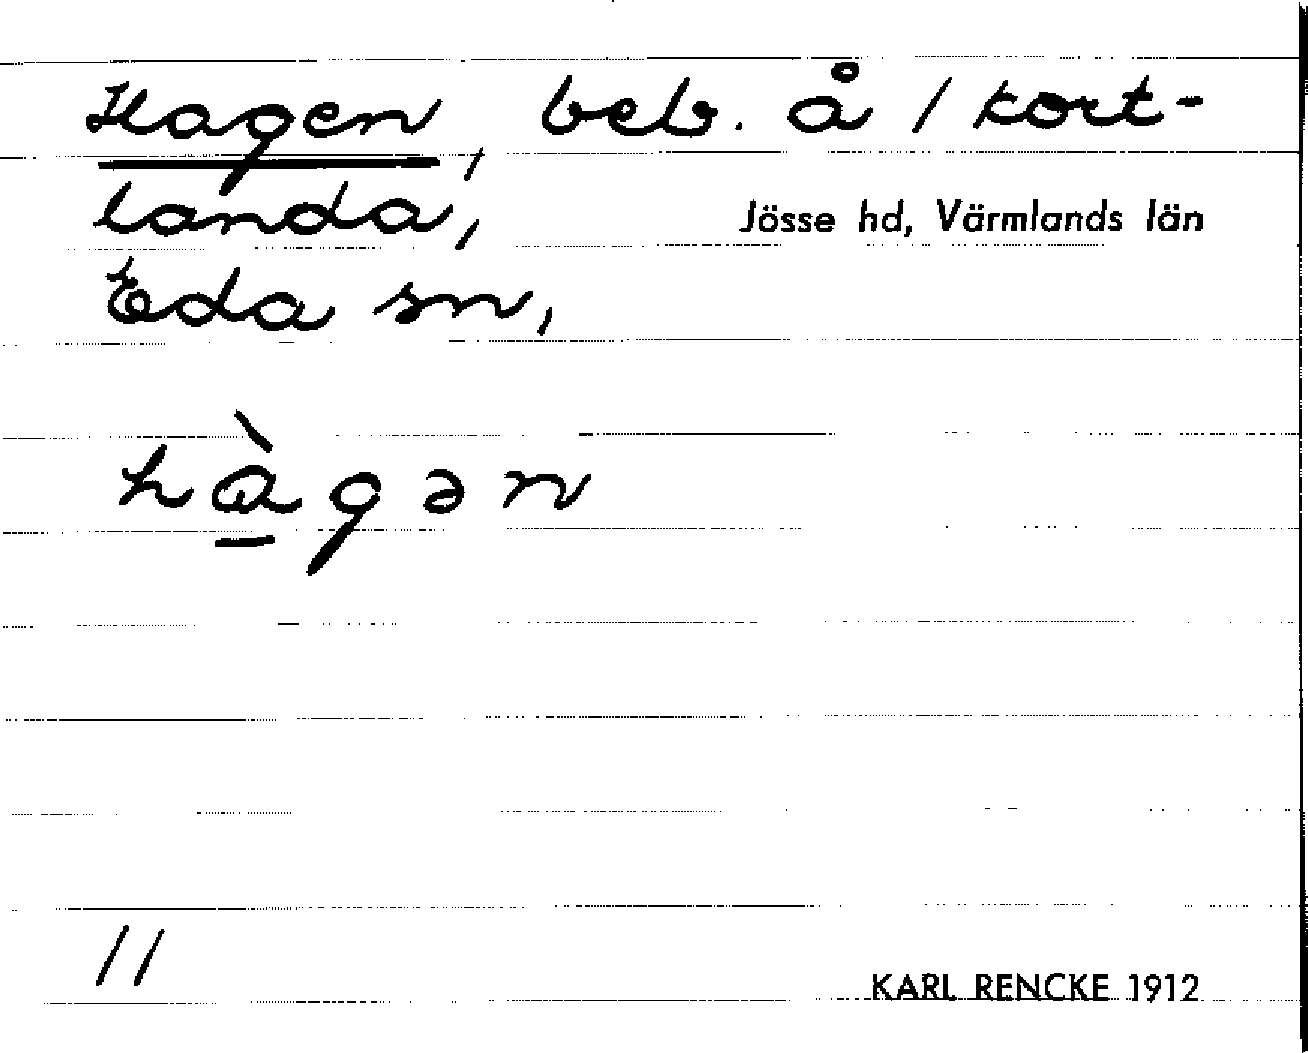 Hagen, beb. å / kort-
landa, Jösse hd, Värmlands län
Eda sn,
hàgən
11
KARL RENCKE 1912